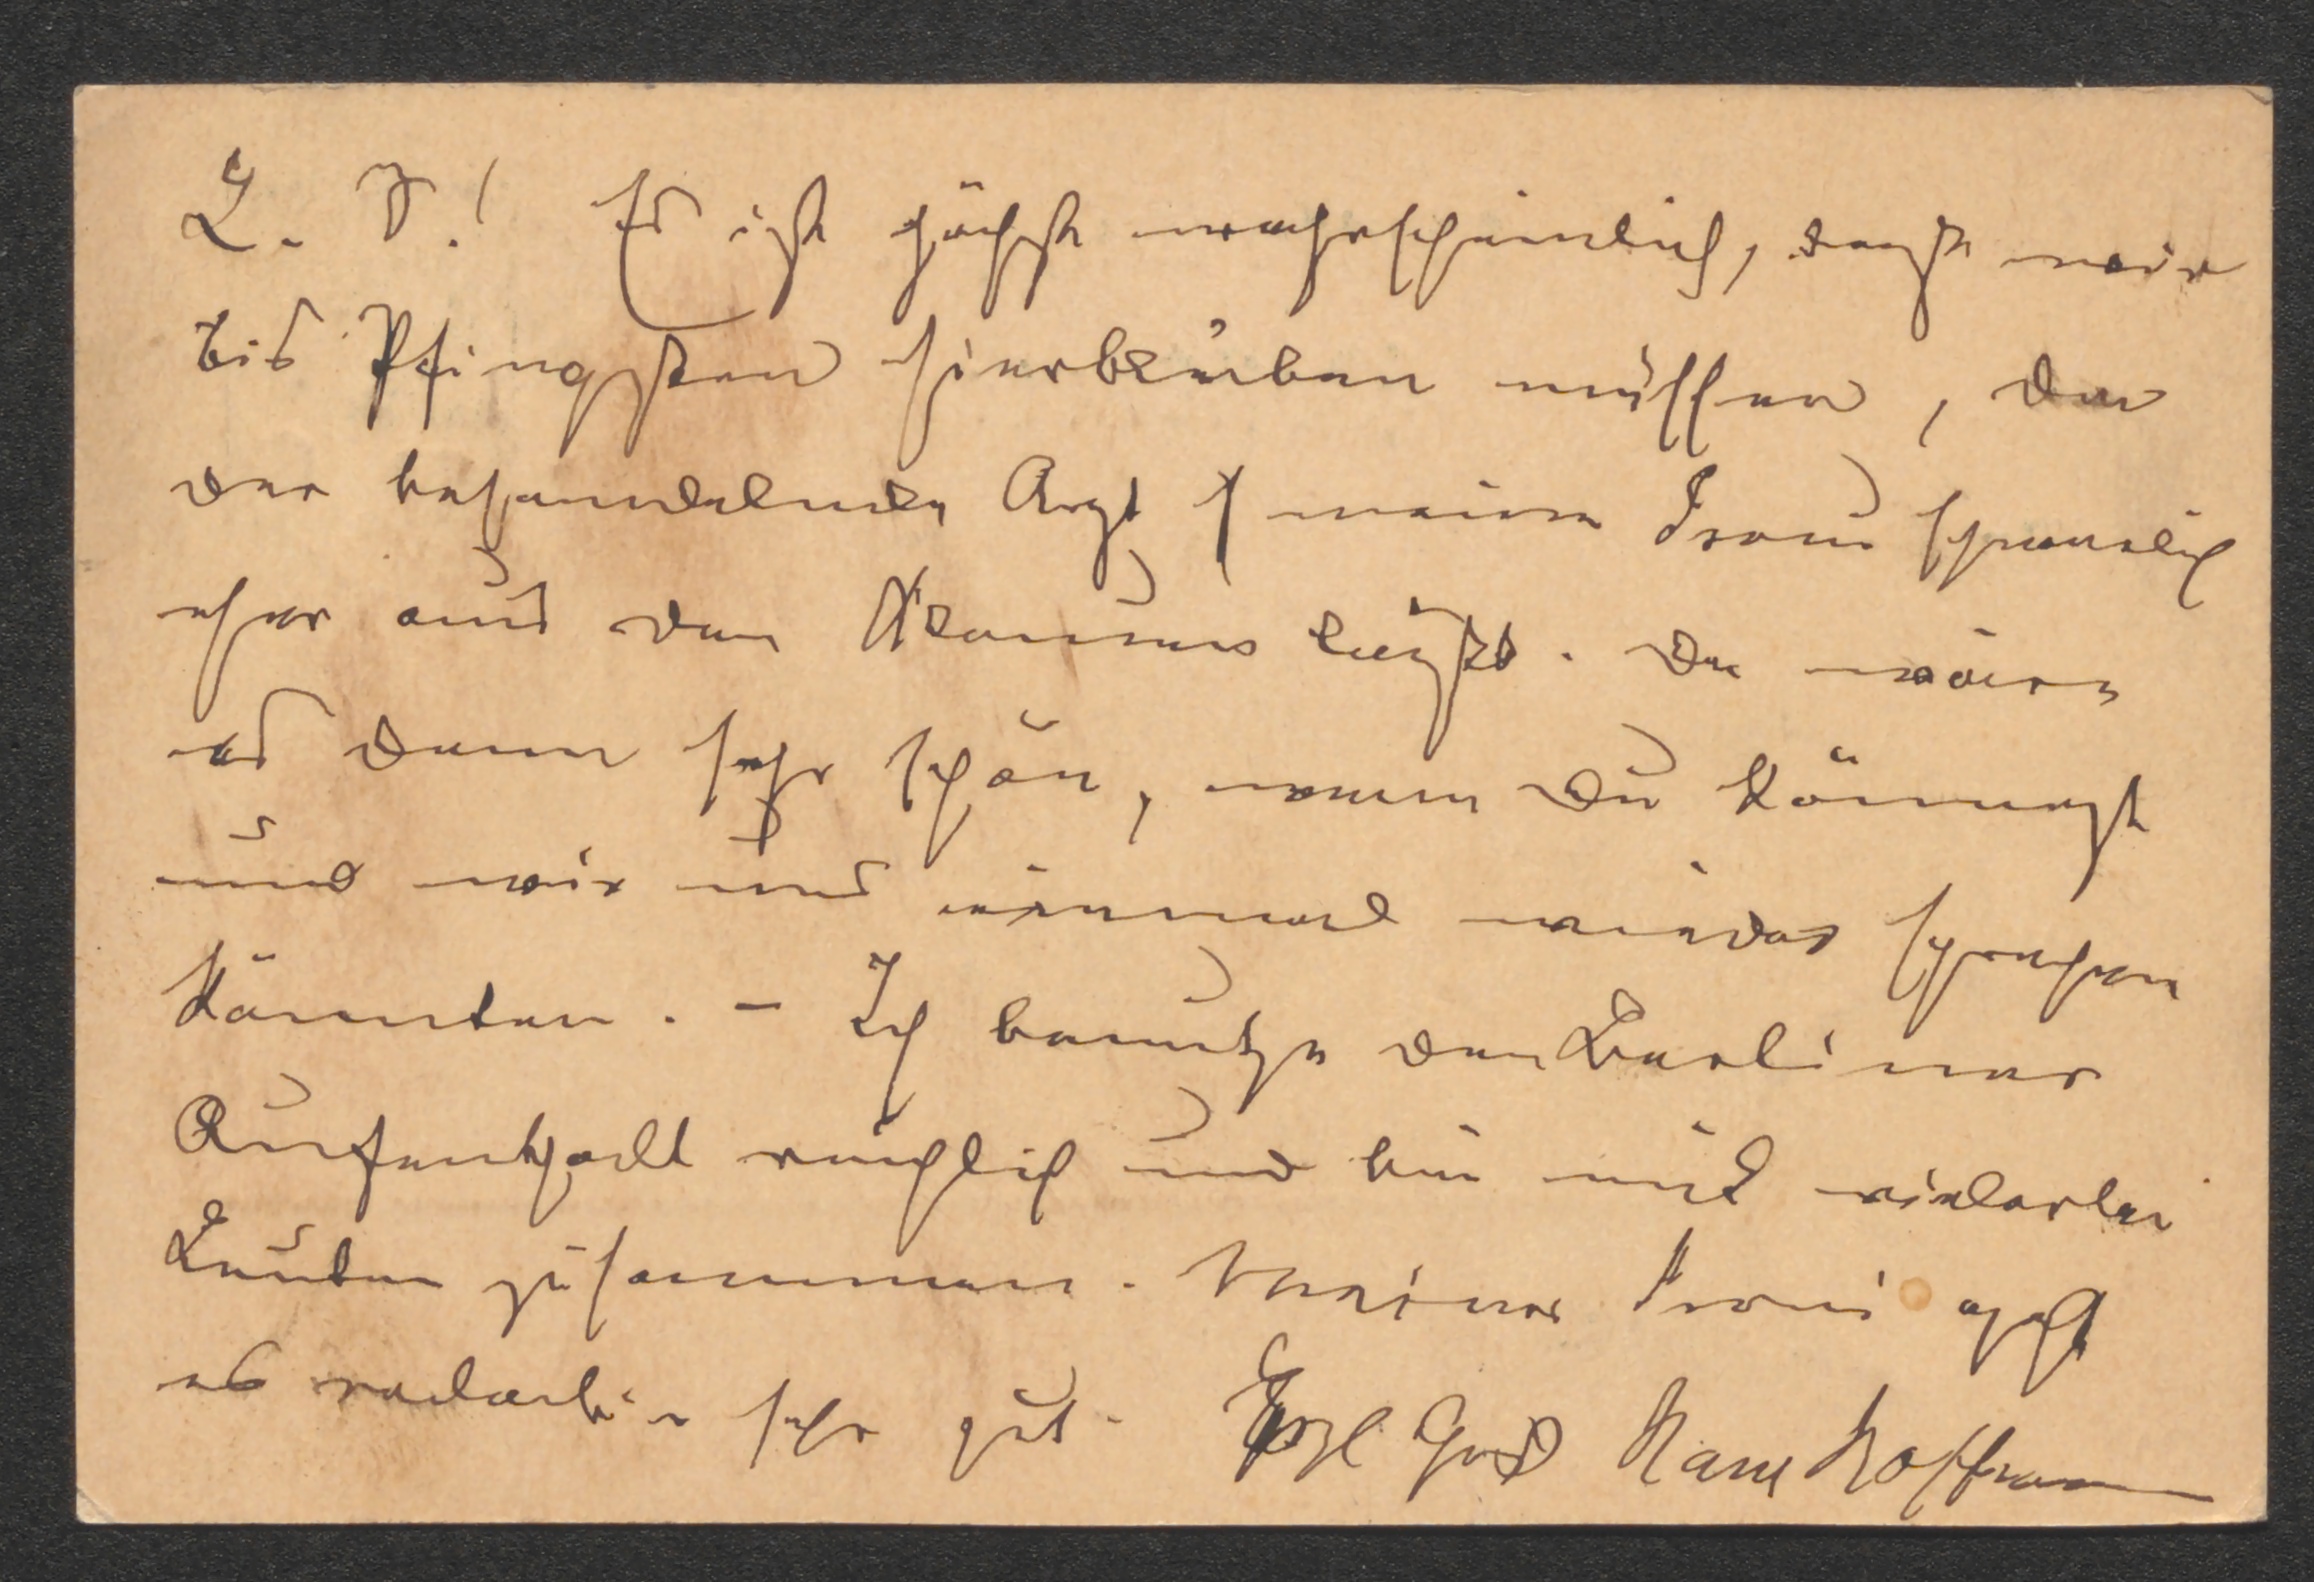 L. J.! Es ist höchst wahrscheinlich, dass wir
bis Pfingsten hierbleiben müssen, da
der behandelnde Arzt meine Frau schwerlich
eher aus den Klauen lässt. Da wäre
es dann sehr schön, wenn Du kämest
und wir uns einmal wieder sprechen
könnten. – Ich benutze den Berliner
Aufenthalt reichlich und bin mit vielerlei
Leuten zusammen. Meiner Frau geht
es relativ sehr gut. Herzl Gruß Hans Hoffmann